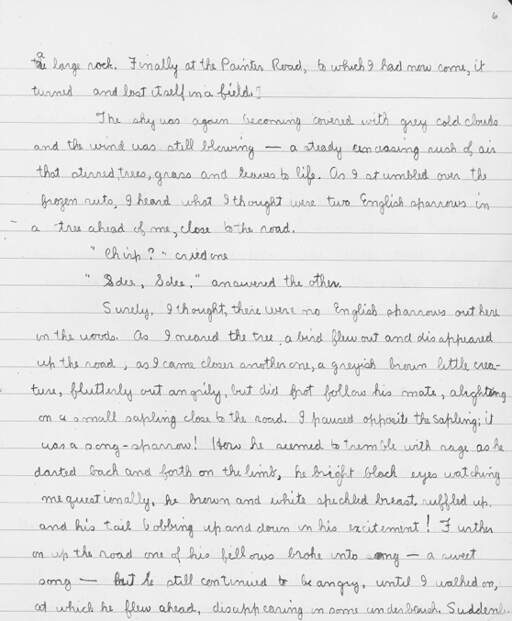 6
a large rock. Finally at the Painter Road, to which I had now come, it
turned and lost itself in a field.]
The sky was again becoming covered with grey cold clouds
and the wind was still blowing — a steady unceasing rush of air
that stirred, trees, grass and leaves to life. As I stumbled over the
frozen ruts, I heard what I thought were two English sparrows in
a tree ahead of me, close to the road.
"Chirp?" cried one
"Sdee, Sdee," answered the other.
Surely, I thought, there were no English sparrows out here
in the woods. As I neared the tree, a bird flew out and disappeared
up the road, as I came closer another one, a greyish brown little crea-
ture, flutterly out angrily, but did not follow his mate, alighting
on a small sapling close to the road. I paused opposite the sapling; it
was a song-sparrow! How he seemed to tremble with rage as he
darted back and forth on the limb, he bright black eyes watching
me questionally, he brown and white speckled breast ruffled up.
and his tail bobbing up and down in his excitement! Further
on up the road one of his fellows broke into song — a sweet
song — but he still continued to be angry, until I walked on,
at which he flew ahead, disappearing in some underbrush. Suddenl